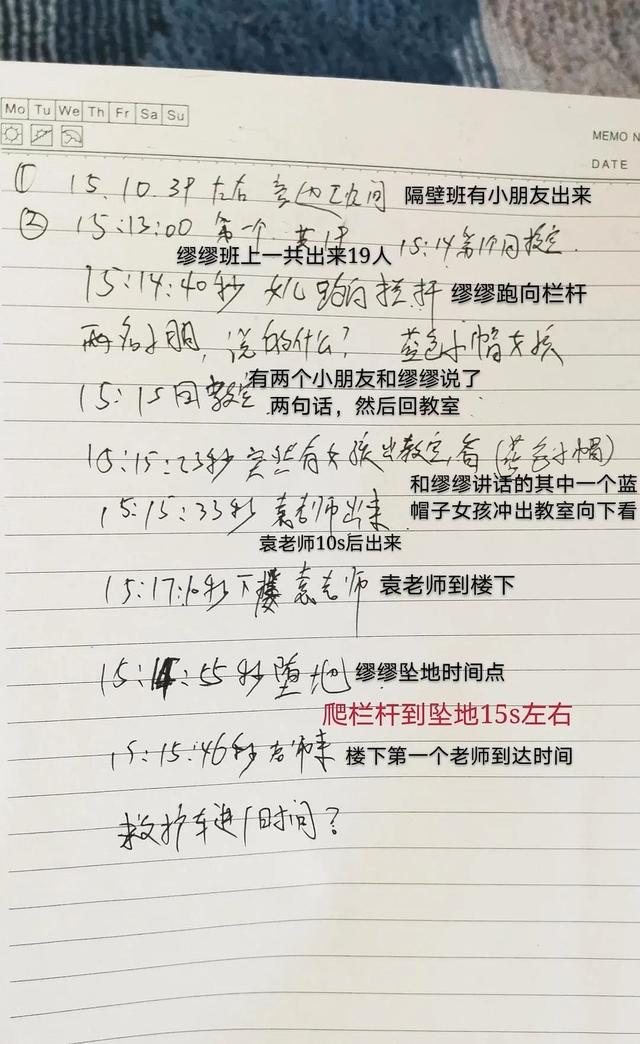 Mo Tu We Th Fr Sa Su
MEMO N
DATE
① 15.10.38 左右 旁边 间
隔壁班有小朋友出来
② 15:13:00 第一个
15:14第 个回教室
缪缪班上一共出来19人
15:14:40秒 女儿跑向拦杆
缪缪跑向栏杆
两名小朋, 说的什么? 蓝色小帽女孩
有两个小朋友和缪缪说了
两句话，然后回教室
15:15回教室
15:15:23秒 突然有女孩出教室看(蓝色小帽)
和缪缪讲话的其中一个蓝
帽子女孩冲出教室向下看
15:15:33秒 袁老师出来
袁老师10s后出来
15:17:10秒下楼 袁老师
袁老师到楼下
15:14:55秒 坠地
缪缪坠地时间点
爬栏杆到坠地15s左右
15:15:46秒老师来
楼下第一个老师到达时间
救护车进 时间?